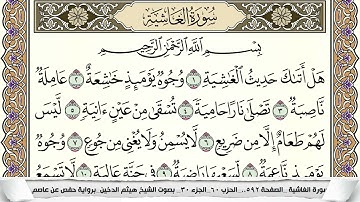 سُورَةُ الغَاشِيَةِ
بِسْمِ ٱللَّهِ ٱلرَّحْمَٰنِ ٱلرَّحِيمِ
هَلْ أَتَىٰكَ حَدِيثُ ٱلْغَٰشِيَةِ ١ وُجُوهٌ يَوْمَئِذٍ خَٰشِعَةٌ ٢ عَامِلَةٌ
نَّاصِبَةٌ ٣ تَصْلَىٰ نَارًا حَامِيَةً ٤ تُسْقَىٰ مِنْ عَيْنٍ ءَانِيَةٍ ٥ لَّيْسَ
لَهُمْ طَعَامٌ إِلَّا مِن ضَرِيعٍ ٦ لَّا يُسْمِنُ وَلَا يُغْنِى مِن جُوعٍ ٧ وُجُوهٌ
يَوْمَئِذٍ نَّاعِمَةٌ ٨ لِّسَعْيِهَا رَاضِيَةٌ ٩ فِى جَنَّةٍ عَالِيَةٍ ١٠ لَّا تَسْمَعُ
سورة الغاشية _ الصفحة ٥٩٢ .. الحزب ٦٠ _ الجزء ٣٠ _ بصوت الشيخ هيثم الدخين _ برواية حفص عن عاصم